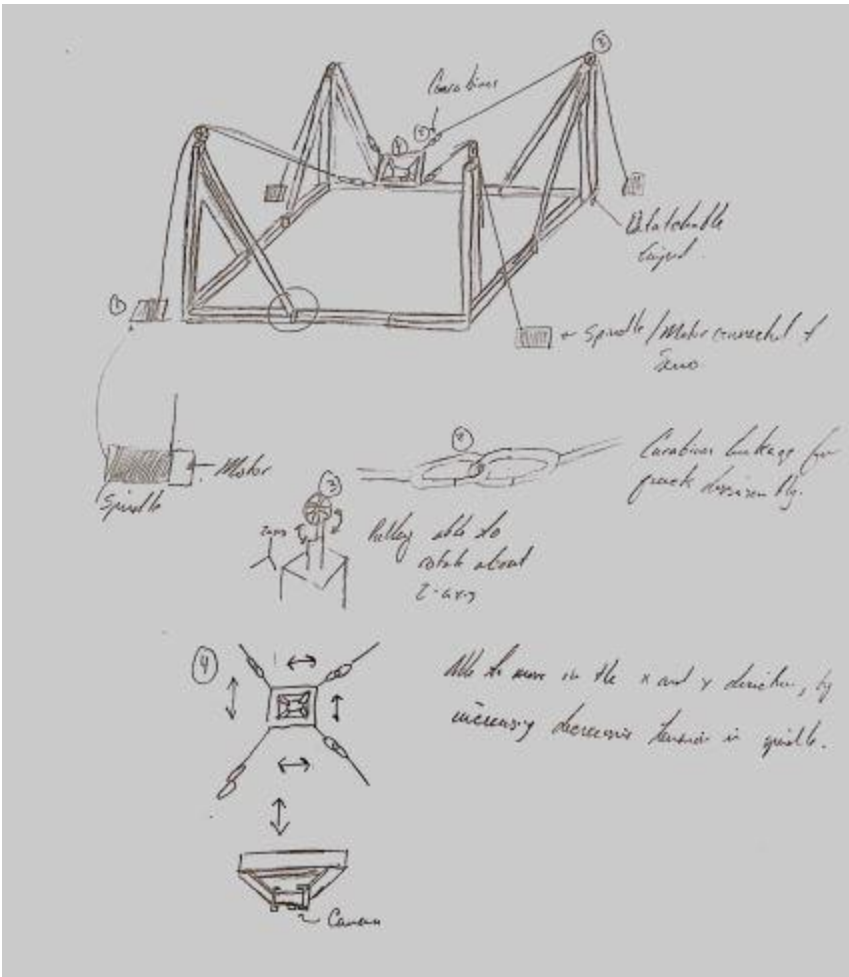 3
Carabiner
4
2
Detatchable
1
← Spindle / Motor connected to
Servo
← Motor
Spindle
2
Carabiner linkage for
quick
3
Z-axis
Pulley able to
rotate about
Z-axis
4
Able to move in the x and y direction, by
increasing decreasing tension in spindle.
Camera